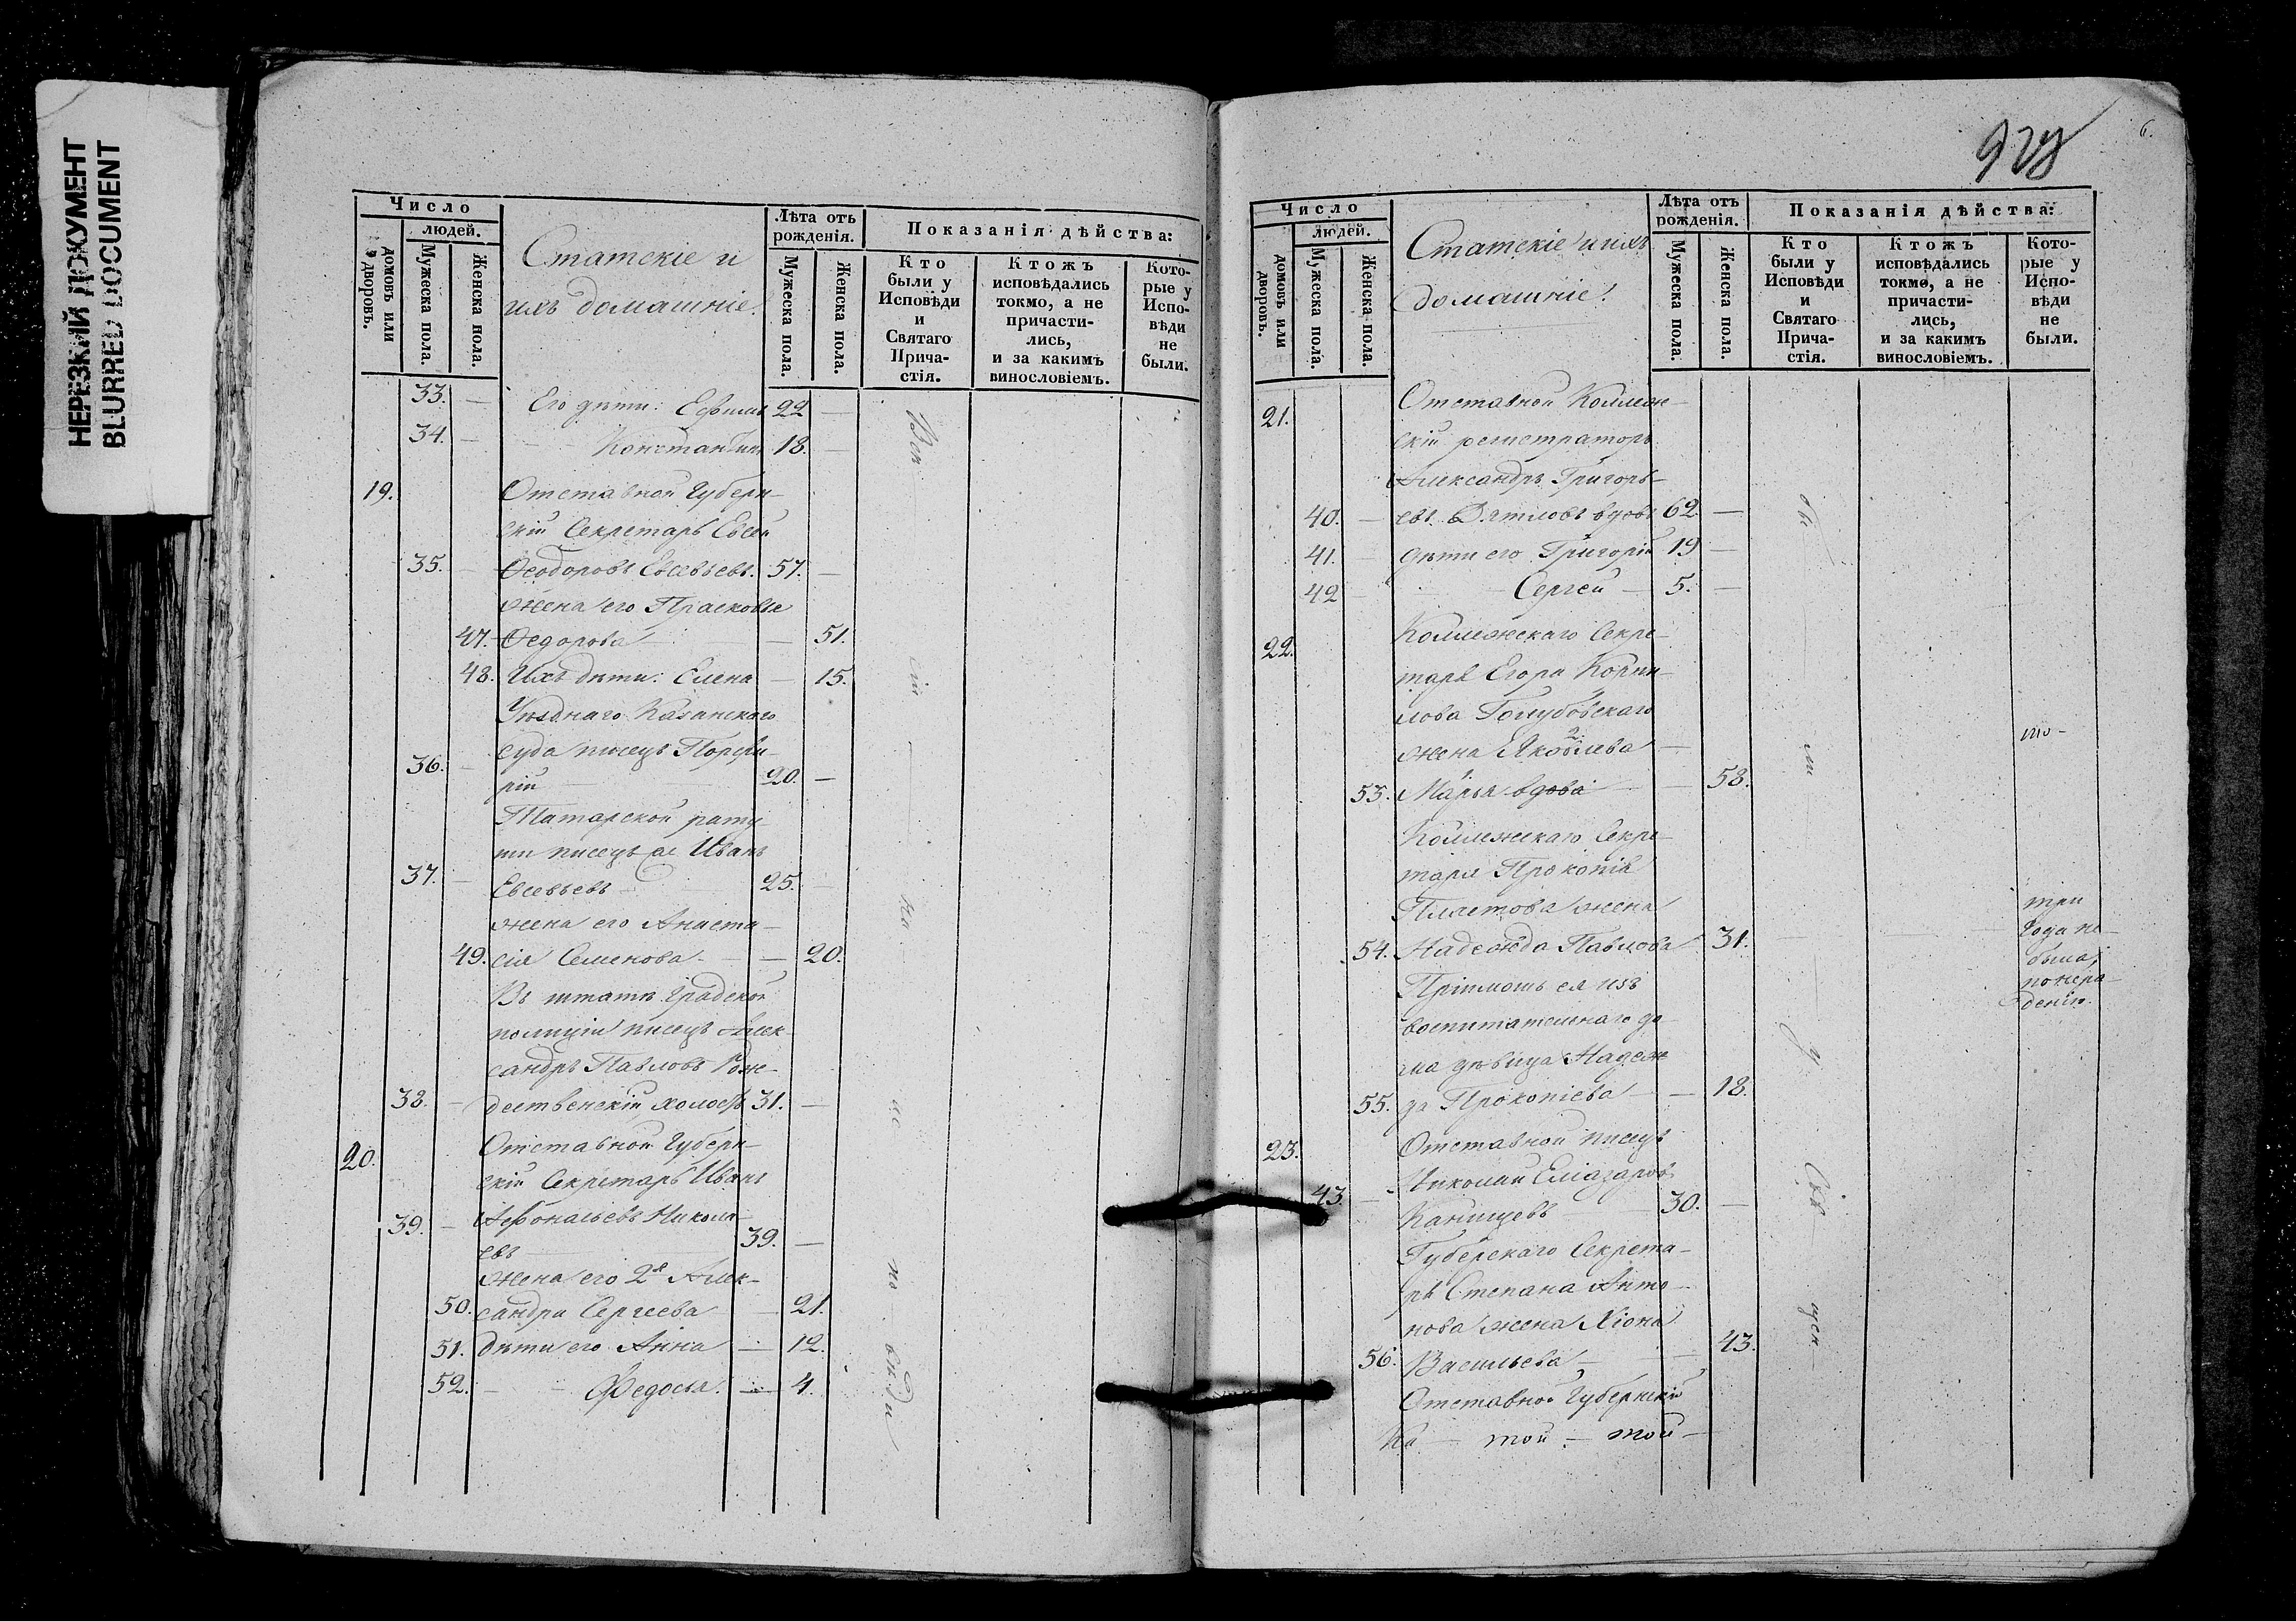 НЕРЕЗКИЙ ДОКУМЕНТ
BLURRED DOCUMENT
Число
людей.
домовъ или дворовъ.
Мужеска пола.
Женска пола.
Статскіе и
ихъ домашніе.
Лѣта отъ
рожденія.
Мужеска пола.
Женска пола.
Показанія дѣйства:
Кто
были у
Исповѣди
и
Святаго
Прича-
стія.
Ктожъ
исповѣдались
токмо, а не
причасти-
лись,
и за какимъ
винословіемъ.
Кото-
рые у
Испо-
вѣди
не
были.
33. — Его дѣти: Ефимъ 22 —
34. — Константинъ 18. —
19. Отставной Губерн-
скій Секретарь Евсей
35. — Ѳеодоровъ Евсевьевъ. 57. —
жена его Прасковья
47. Ѳедорова — 51.
48. Ихъ дѣти: Елена — 15.
Уѣзднаго Казанскаго
суда писецъ Порфи-
36. — рій 20. —
Татарской рату-
ши писецъ Иванъ
37. — Евсевьевъ — 25. —
жена его Анаста-
49. сія Семенова — — 20.
Въ штатѣ градской
полиціи писецъ Алек-
сандръ Павловъ Рож-
38. — дественскій холостъ 31. —
20. Отставной Губерн-
скій Секретарь Иванъ
39. — Афонасьевъ Никола-
евъ 39. —
жена его 2я Алек-
50. сандра Сергеева — 21.
51. дѣти его Анна — 12.
52. — — Федосья. — 4.
6.
Число
людей.
домовъ или дворовъ.
Мужеска пола.
Женска пола.
Статскіе и ихъ
домашніе.
Лѣта отъ
рожденія.
Мужеска пола.
Женска пола.
Показанія дѣйства:
Кто
были у
Исповѣди
и
Святаго
Прича-
стія.
Ктожъ
исповѣдались
токмо, а не
причасти-
лись,
и за какимъ
винословіемъ.
Кото-
рые у
Испо-
вѣди
не
были.
21. Отставной Коллеж-
скій регистраторъ
Александръ Григорь-
40. — евъ Дятловъ вдовъ 62. —
41. дѣти его Григорій 19 —
42 Сергей — 5. —
22. Коллежскаго Секре-
таря Егора Корни-
лова Голубовскаго
2.
жена Яковлева —
1.
53. Марья вдова — 58.
Коллежскаго Секре-
таря Прокопія
Пластова жена
54. Надежда Павлова 31.
три
года не
была,
понера-
денію.
Пріимошъ ея изъ
воспитательнаго до-
ма дѣвица Надеж-
55. да Прокопіева — — 18.
23. Отставной писецъ
Николай Еліазаровъ
43. — Канищевъ 30. —
Губерскаго Секрета-
ря Степана Анто-
нова жена Хіона
56. Васильева — — 43.
Отставной Губернскій
Ка — той — той —